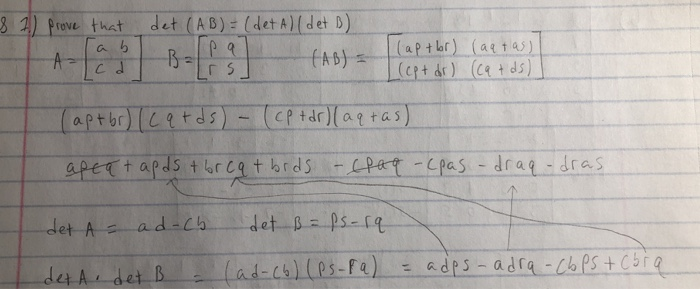 8 7) prove that det (AB) = (det A)(det B)
A = [a b] B = [p q] (AB) = [(ap + br) (aq + as)]
[c d] [r s] [(cp + dr) (cq + ds)]
(ap + br)(cq + ds) - (cp + dr)(aq + as)
apcq + apds + brcq + brds - cpaq - cpas - draq - dras
det A = ad - cb det B = ps - rq
det A · det B = (ad - cb)(ps - rq) = adps - adrq - cbps + cbrq